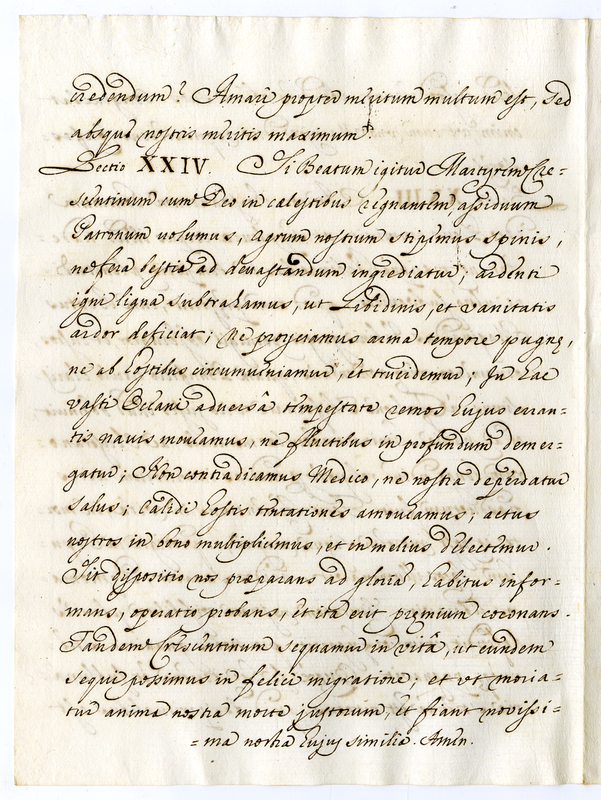 credendum? Amari propter meritum multum est, sed
absque nostris meritis maximum.
Lectio XXIV. Si Beatum igitur Martyrem Cre-
scentinum cum Deo in cælestibus regnantem, assiduum
Patronum volumus, agrum nostrum stipemus spinis,
ne fera bestia ad devastandum ingrediatur; ardenti
igni ligna subtrahamus, ut Libidinis, et vanitatis
ardor deficiat; Ne proijciamus arma tempore pugnę,
ne ab hostibus circumveniamur, et trucidemur; In hac
vasti Oceani adversâ tempestate remos hujus erran-
tis navis moveamus, ne fluctibus in profundum demer-
gatur; Non contradicamus Medico, ne nostra deperdatur
salus; Callidi hostis tentationes amoveamus; actus
nostros in bono multiplicemus, et in melius delectemur.
Sit dispositio nos præparans ad gloriã, habitus infor-
mans, operatio probans, et ita erit pręmium coronans.
Tandem Crescentinum sequamur in vitâ, ut eundem
sequi possimus in felici migratione; et ut moria-
tur anima nostra morte justorum, et fiant novissi-
=ma nostra hujus similia. Amen.